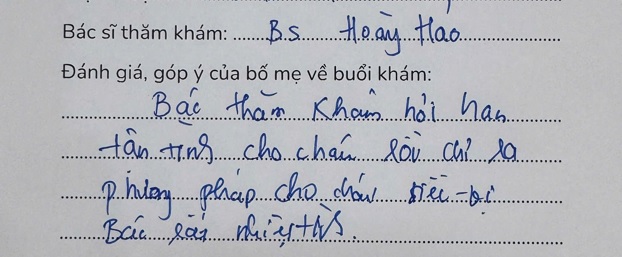 Bác sĩ thăm khám: BS Hoàng Hao
Đánh giá, góp ý của bố mẹ về buổi khám:
Bác thăm khám hỏi han
tận tình cho cháu rồi chỉ ra
phương pháp cho cháu
Bác rất nhiệt